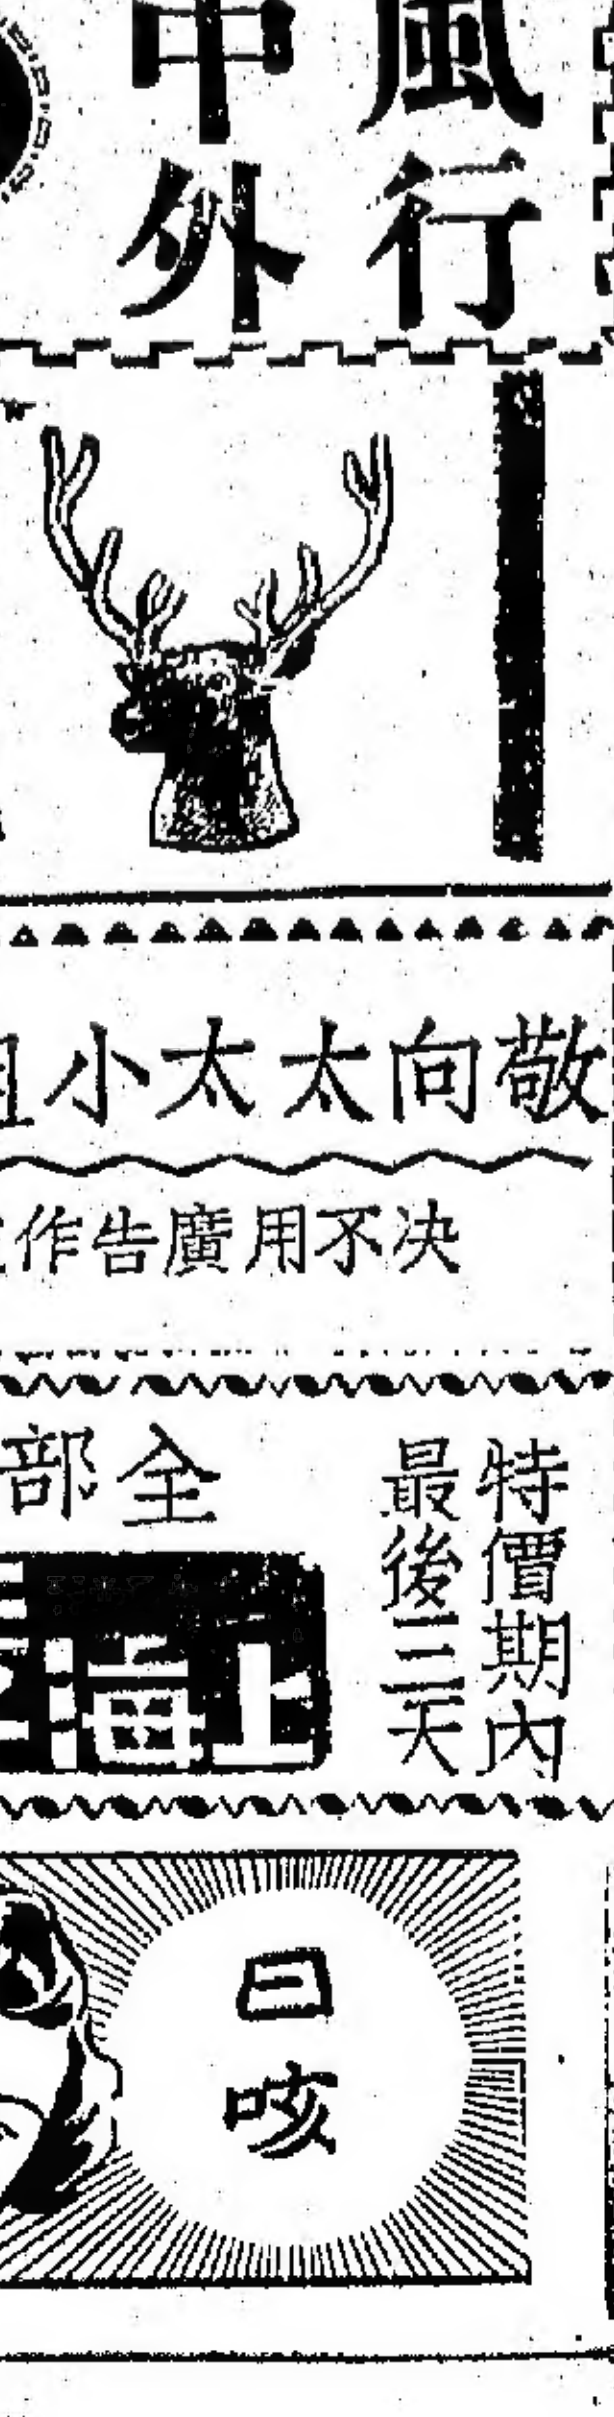 風行
中外
敬向太太小姐
決不用廣告作
特價期內
最後三天
全部
上海
日咳